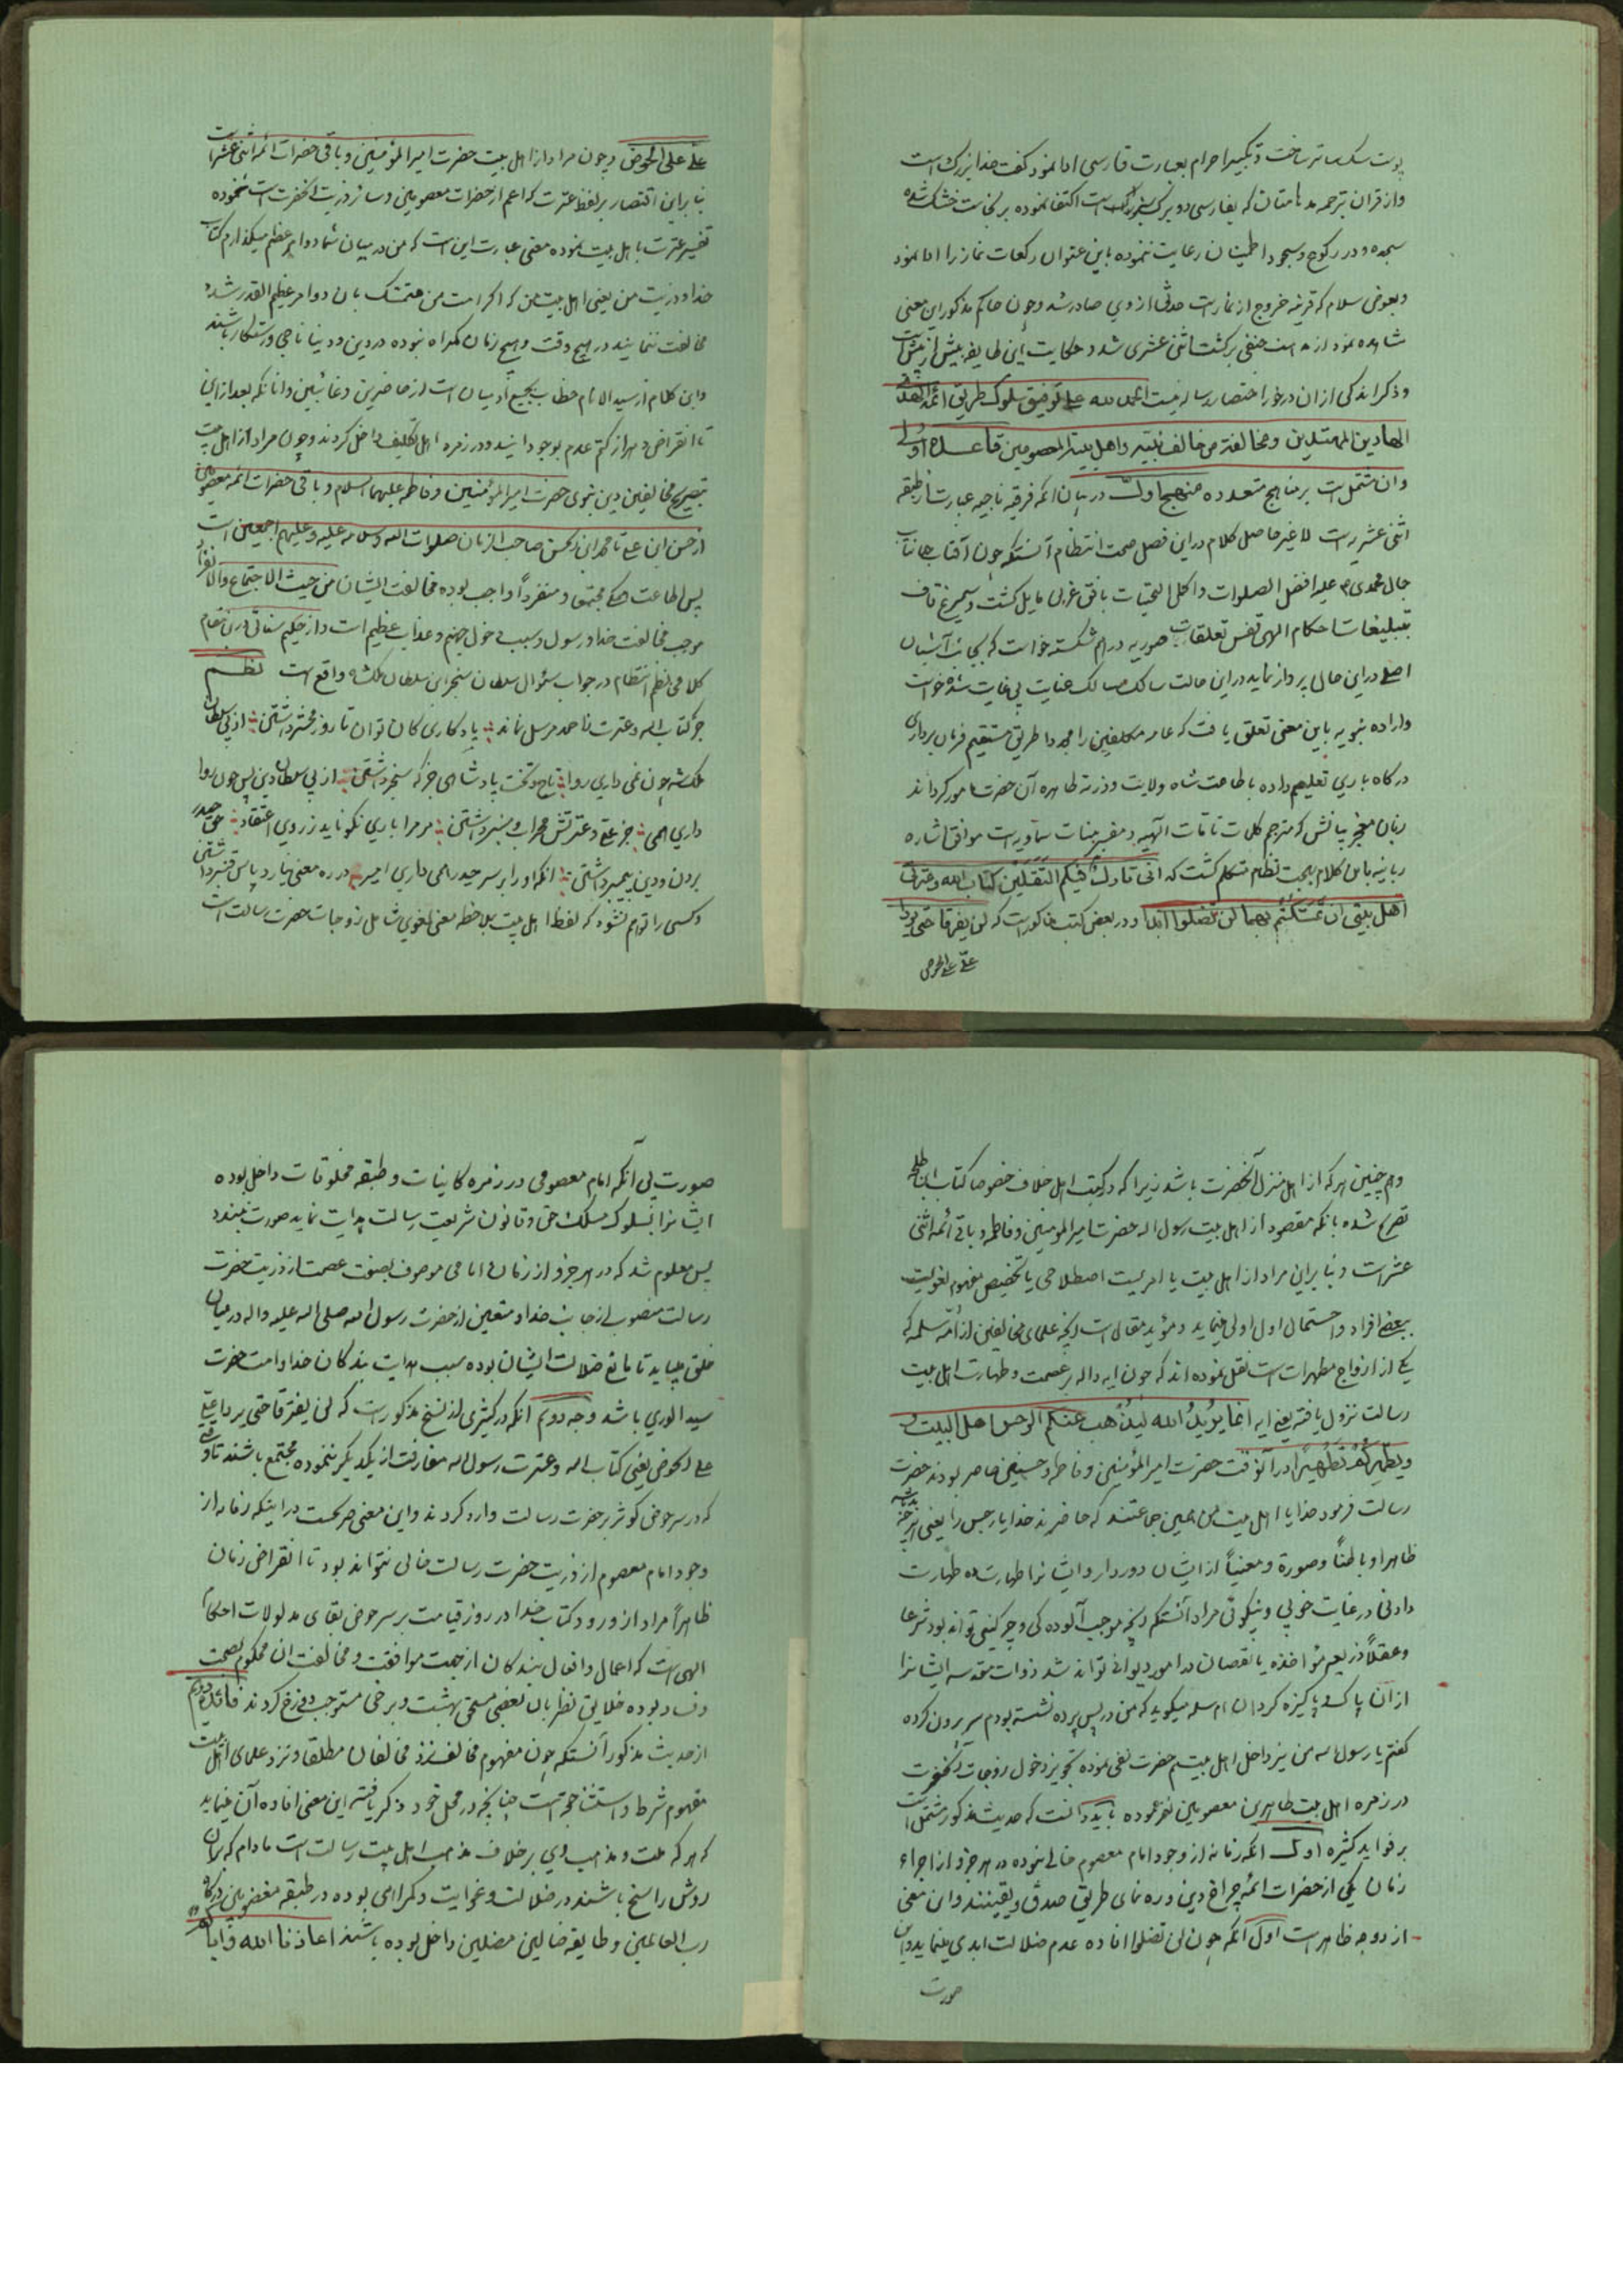 پوست سک ساتر ساخت و تکبیر احرام بعبارت فارسی ادا نمود گفت خدا بزرگ است
و از قران بترجمه مدهامتان که بفارسی دو برک سبز است اکتفا نموده بر نجاست خشک شده
سجده و در رکوع و سجود اطمینان رعایت ننموده باین عنوان رکعات نماز را ادا نمود
و بعوض سلام که قرینه خروج از نماز است حدثی از وی صادر شد و چون حاکم مذکور این معنی
مشاهده نمود از مذهب حنفی برکشت اثنی عشری شد و حکایت این طایفه بیش از پیش است
و ذکر اندکی از ان در خور اختصار رساله نیست الحمد لله علی توفیق سلوک طریق ائمة الهدی
الهادین المهتدین و مخالفة من خالف نبیه و اهل بیته المعصومین قاعده اولی
و ان مشتمل است بر مناهج متعدده منهج اول در بیان انکه فرقه ناجیه عبارت از طبقه
اثنی عشریه است لا غیر حاصل کلام در این فصل صحت انتظام آنستکه چون آفتاب جهانتاب
جمال محمدی علیه افضل الصلوات و اکمل التحیات بافق غربی مایل کشت و سیمرغ قاف
تبلیغات احکام الهی قفس تعلقات صوریه درهم شکسته خواست که بجانب آشیان
اصلی در این حال پرواز نماید در این حالت سالک مسالک عنایت بی غایت شده خواست
و اراده نبویه باین معنی تعلق یافت که عامه مکلفین را مجددا طریق مستقیم فرمان برداری
درکاه باری تعلیم داده باطاعت شاه ولایت و ذریه طاهره آن حضرت مامور کرداند
زبان معجز بیانش که مترجم کلمات تامات الهیه و مفسر بینات سماویه است موافق اشاره
ربانیه باین کلام بهجت نظام متکلم کشت که انی تارک فیکم الثقلین کتاب الله و عترتی
اهل بیتی ان تمسکتم بهما لن تضلوا ابدا و در بعض کتب مذکور است که لن یفترقا حتی یردا
علی علی الحوض
علی علی الحوض و چون مراد از اهل بیت حضرت امیر المؤمنین و باقی حضرات ائمه اثنی عشر است
بنا براین اقتصار بر لفظ عترت که اعم از حضرات معصومین و سایر ذریت انحضرت است ننموده
تفسیر عترت باهل بیت نموده معنی عبارت این است که من در میان شما دو امر عظیم میکذارم کتاب
خدا و ذریت من یعنی اهل بیت من که اکر امت من متمسک بان دو امر عظیم القدر شده
مخالفت ننمایند در هیچ وقت و هیچ زمان کمراه نبوده در دین و دنیا ناجی و رستکار باشند
و این کلام از سید الانام خطاب بجمیع آدمیان است از حاضرین و غائبین و انانکه بعد از این
تا انقراض دهر از کتم عدم بوجود آیند و در زمره اهل تکلیف داخل کردند و چون مراد از اهل بیت
بتصریح مخالفین دین نبوی حضرت امیر المؤمنین و فاطمه علیهما السلام و باقی حضرات ائمه معصومین
از حسن ابن علی تا محمد ابن الحسن صاحب الزمان صلوات الله و سلامه علیه و علیهم اجمعین است
پس اطاعت همکی مجتمعا و منفردا واجب بوده مخالفت ایشان من حیث الاجتماع و الانفراد
موجب مخالفت خدا و رسول و سبب دخول جهنم و عذاب عظیم است و از حکیم سنائی در این مقام
کلامی نظم انتظام در جواب سئوال سلطان سنجر ابن سلطان ملکشه واقع است نظم
جز کتاب الله و عترت ز احمد مرسل نماند یادکاری کان توان تا روز محشر داشتن از پی سلطان
ملکشه چون نمی داری روا تاج و تخت پادشاهی جز که سنجر داشتن از پی سلطان دین پس چون روا
داری همی جز علی و عترتش محراب و منبر داشتن مر مرا باری نکو ناید ز روی اعتقاد حق حیدر
بردن و دین پیمبر داشتن انکه او را بر سر حیدر همی داری امیر در ره معنی نیارد پاس قنبر داشتن
و کسی را توهم نشود که لفظ اهل بیت بملاحظه معنی لغوی شامل زوجات حضرت رسالت است
و همچنین هر که از اهل منزل آنحضرت باشد زیرا که در کتب اهل خلاف خصوصا کتاب
تصریح شده بانکه مقصود از اهل بیت رسول اله حضرت امیر المومنین و فاطمه و باقی ائمه اثنی
عشر است و بنا براین مراد از اهل بیت یا امریست اصطلاحی یا تخصیص مفهوم لغویست
ببعضی افراد و احتمال اول اولی مینماید و مؤید مقال است انچه علمای مخالفین از ام سلمه که
یکی از ازواج مطهرات است نقل نموده اند که چون ایه داله بر عصمت و طهارت اهل بیت
رسالت نزول یافته یعنی ایه انما یرید الله لیذهب عنکم الرجس اهل البیت و
ویطهرکم تطهیرا در آنوقت حضرت امیر المؤمنین و فاطمه و حسنین حاضر بودند حضرت
رسالت فرمود خدایا اهل بیت من همین جماعتند که حاضرند خدایا رجس را یعنی هر چه
ظاهرا و باطنا و صورة و معنیا از ایشان دور دار و ایشانرا طهارت ده طهارت
دادنی در غایت خوبی و نیکوئی مراد آنستکه انچه موجب آلوده کی و چرکینی تواند بود شرعا
و عقلا و ذریعه مؤاخذه یا نقصان در امور دیوانی تواند شد ذوات مقدسه ایشانرا
از ان پاک و پاکیزه کردان ام سلمه میکوید که من در پس پرده نشسته بودم سر بیرون کرده
کفتم یا رسول اله من نیز داخل اهل بیتم حضرت نفی نموده تجویز دخول زوجات آنحضرت
در زمره اهل بیت طاهرین معصومین نفرموده باید دانست که حدیث مذکور مشتمل است
بر فواید کثیره اول انکه زمانه از وجود امام معصوم خالی نبوده در هر جزو از اجزاء
زمان یکی از حضرات ائمه چراغ دین و ره نمای طریق صدق و یقینند و این معنی
از دو وجه ظاهر است اول انکه چون لن تضلوا افاده عدم ضلالت ابدی مینماید و این
صورت
صورت بی آنکه امام معصومی در زمره کاینات و طبقه مخلوقات داخل بوده
ایشانرا بسلوک مسلک حق و قانون شریعت رسالت هدایت نماید صورت نبندد
پس معلوم شد که در هر جزو از زمان امامی موصوف بصفت عصمت از ذریت حضرت
رسالت منصوب از جانب خدا و متعین از حضرت رسول الله صلی اله علیه واله در میان
خلق میباید تا مانع ضلالت ایشان بوده سبب هدایت بندکان خدا و امت حضرت
سید الوری باشد وجه دویم انکه در کثیری از نسخ مذکور است که لن یفترقا حتی یردا علی
علی الحوض یعنی کتاب اله و عترت رسول اله مفارقت از یکدیکر ننموده مجتمع باشند تا وقتی
که در سر حوض کوثر بر حضرت رسالت وارد کردند و این معنی صریحست در اینکه زمانه از
وجود امام معصوم از ذریت حضرت رسالت خالی نتواند بود تا انقراض زمان
ظاهرا مراد از ورود کتاب خدا در روز قیامت بر سر حوض بقای مدلولات احکام
الهی است که اعمال و افعال بندکان از جهت موافقت و مخالفت ان محکوم بصحت
و فساد بوده خلایق نظر بان بعضی مستحق بهشت و برخی مستوجب دوزخ کردند فائده دویم
از حدیث مذکور آنستکه چون مفهوم مخالف نزد مخالفان مطلقا و نزد علمای اهل بیت
مفهوم شرط و استثنا حجتست چنانچه در محل خود ذکر یافته این معنی افاده آن مینماید
که هر که ملت و مذهب وی بر خلاف مذهب اهل بیت رسالت است مادام که بران
روش راسخ باشند در ضلالت و غوایت و کمراهی بوده در طبقه مغضوبین درکاه
رب العالمین و طایفه ضالین مضلین داخل بوده باشند اعاذنا الله و ایاکم